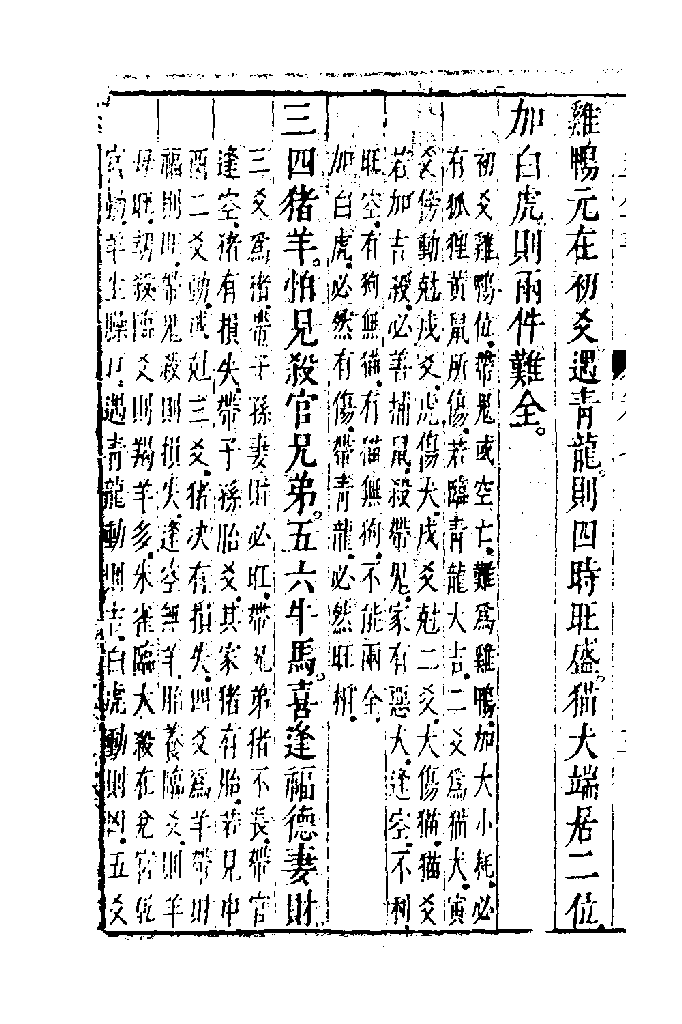 雞鴨元在初爻遇青龍。則四時旺盛。猫犬端居二位。
加白虎。則兩件難全。
初爻雞鴨位。帶鬼或空亡。難為雞鴨。加大小耗。必
有狐狸黃鼠所傷。若臨青龍大吉。二爻為猫犬。寅
爻傍動尅戌爻。虎傷犬。戌爻尅二爻。犬傷猫。猫爻
若加吉殺。必善捕鼠。殺帶鬼。家有惡犬。逢空。不利
旺空。有狗無猫。有猫無狗。不能兩全。
加白虎。必然有傷。帶青龍。必然旺相。
三四猪羊。怕見殺官兄弟。五六牛馬。喜逢福德妻財
三爻為猪。帶子孫妻財必旺。帶兄弟猪不長。帶官
逢空。猪有損失。帶子孫胎爻。其家猪有胎。若見申
酉二爻動。或尅三爻。猪决有損失。四爻為羊帶財
福則旺。帶鬼殺則損失。逢空無羊。胎養臨爻。則羊
母旺。胡殺臨爻則羯羊多。朱雀臨大殺在兌宮乾
宮動。羊生 遇青龍動則吉。白虎動則凶。五爻